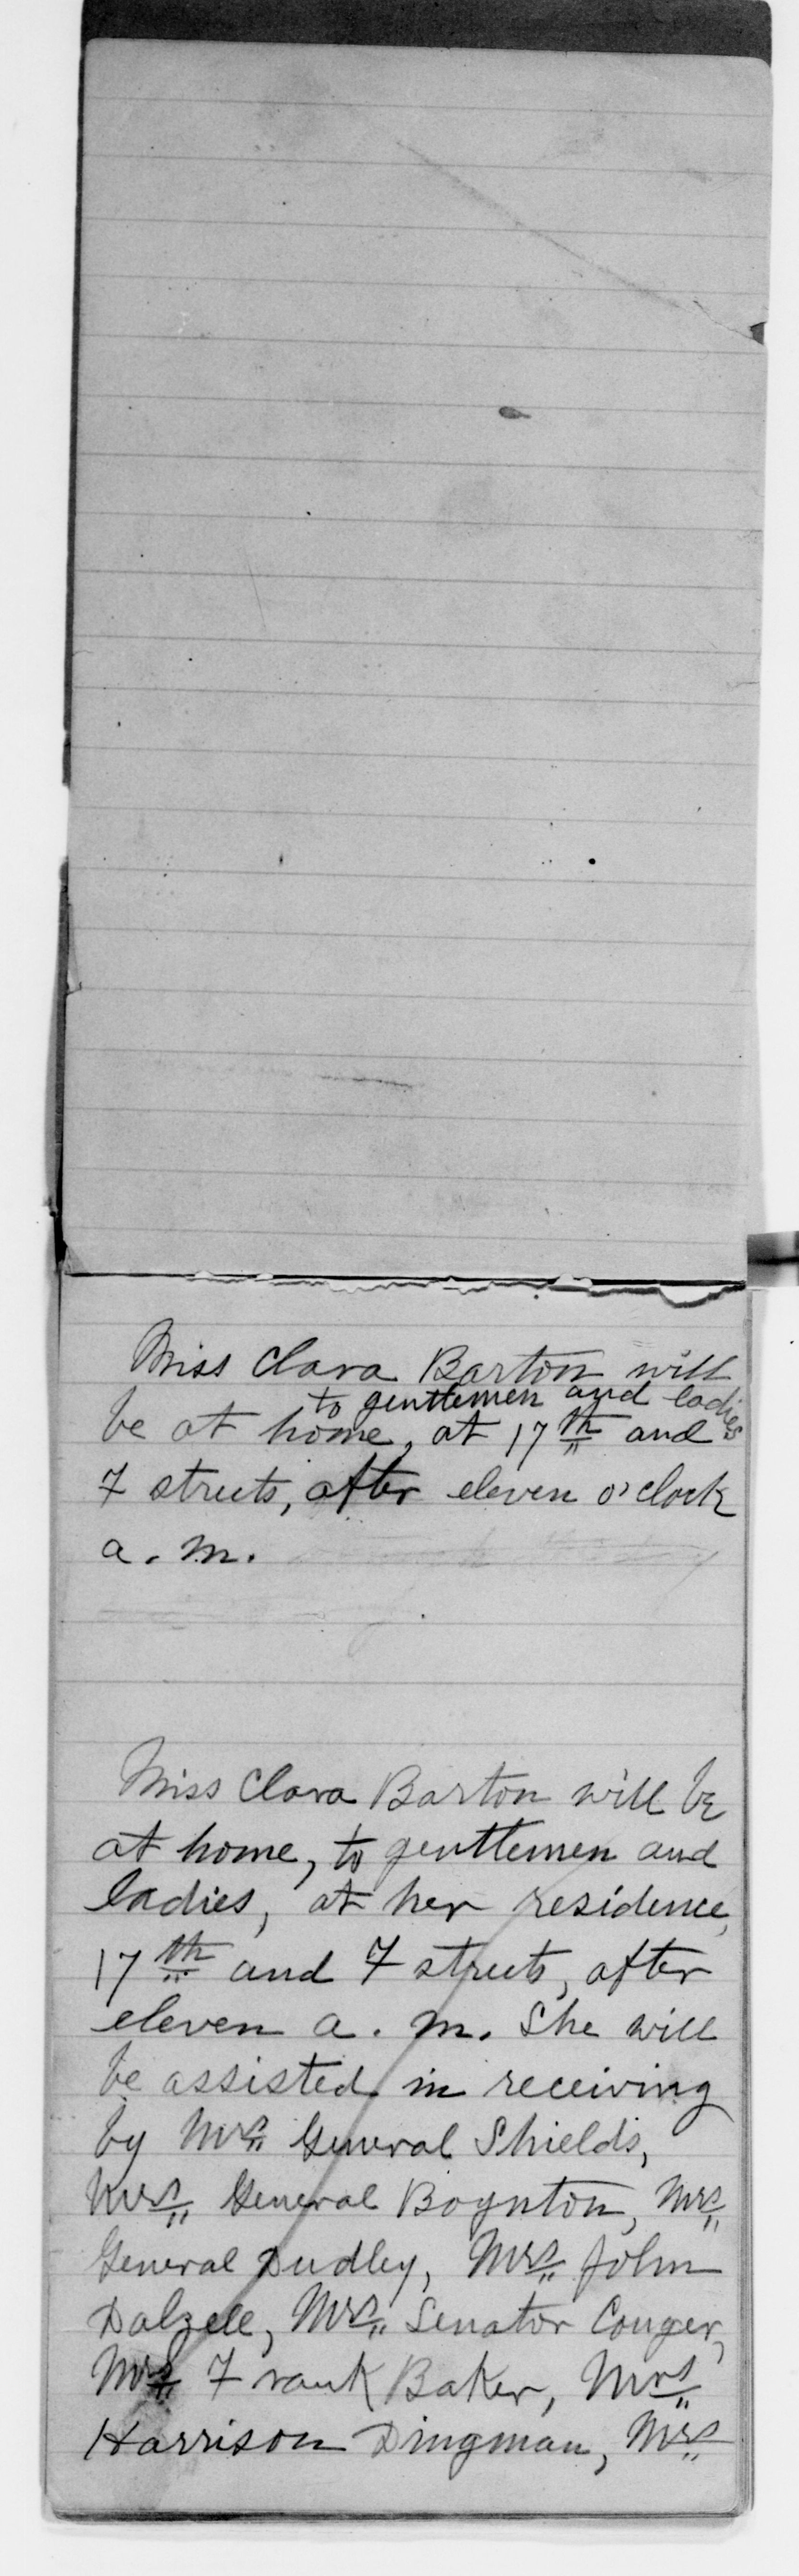 Miss Clara Barton will
to gentlemen and ladies
be at home, at 17th and
F streets, after eleven o'clock
a. m.
Miss Clara Barton will be
at home, to gentlemen and
ladies, at her residence,
17th and F streets, after
eleven a. m. She will
be assisted in receiving
by Mrs General Shields,
Mrs General Boynton, Mrs
General Dudley, Mrs John
Dalzell, Mrs Senator Conger,
Mrs Frank Baker, Mrs
Harrison Dingman, Mrs